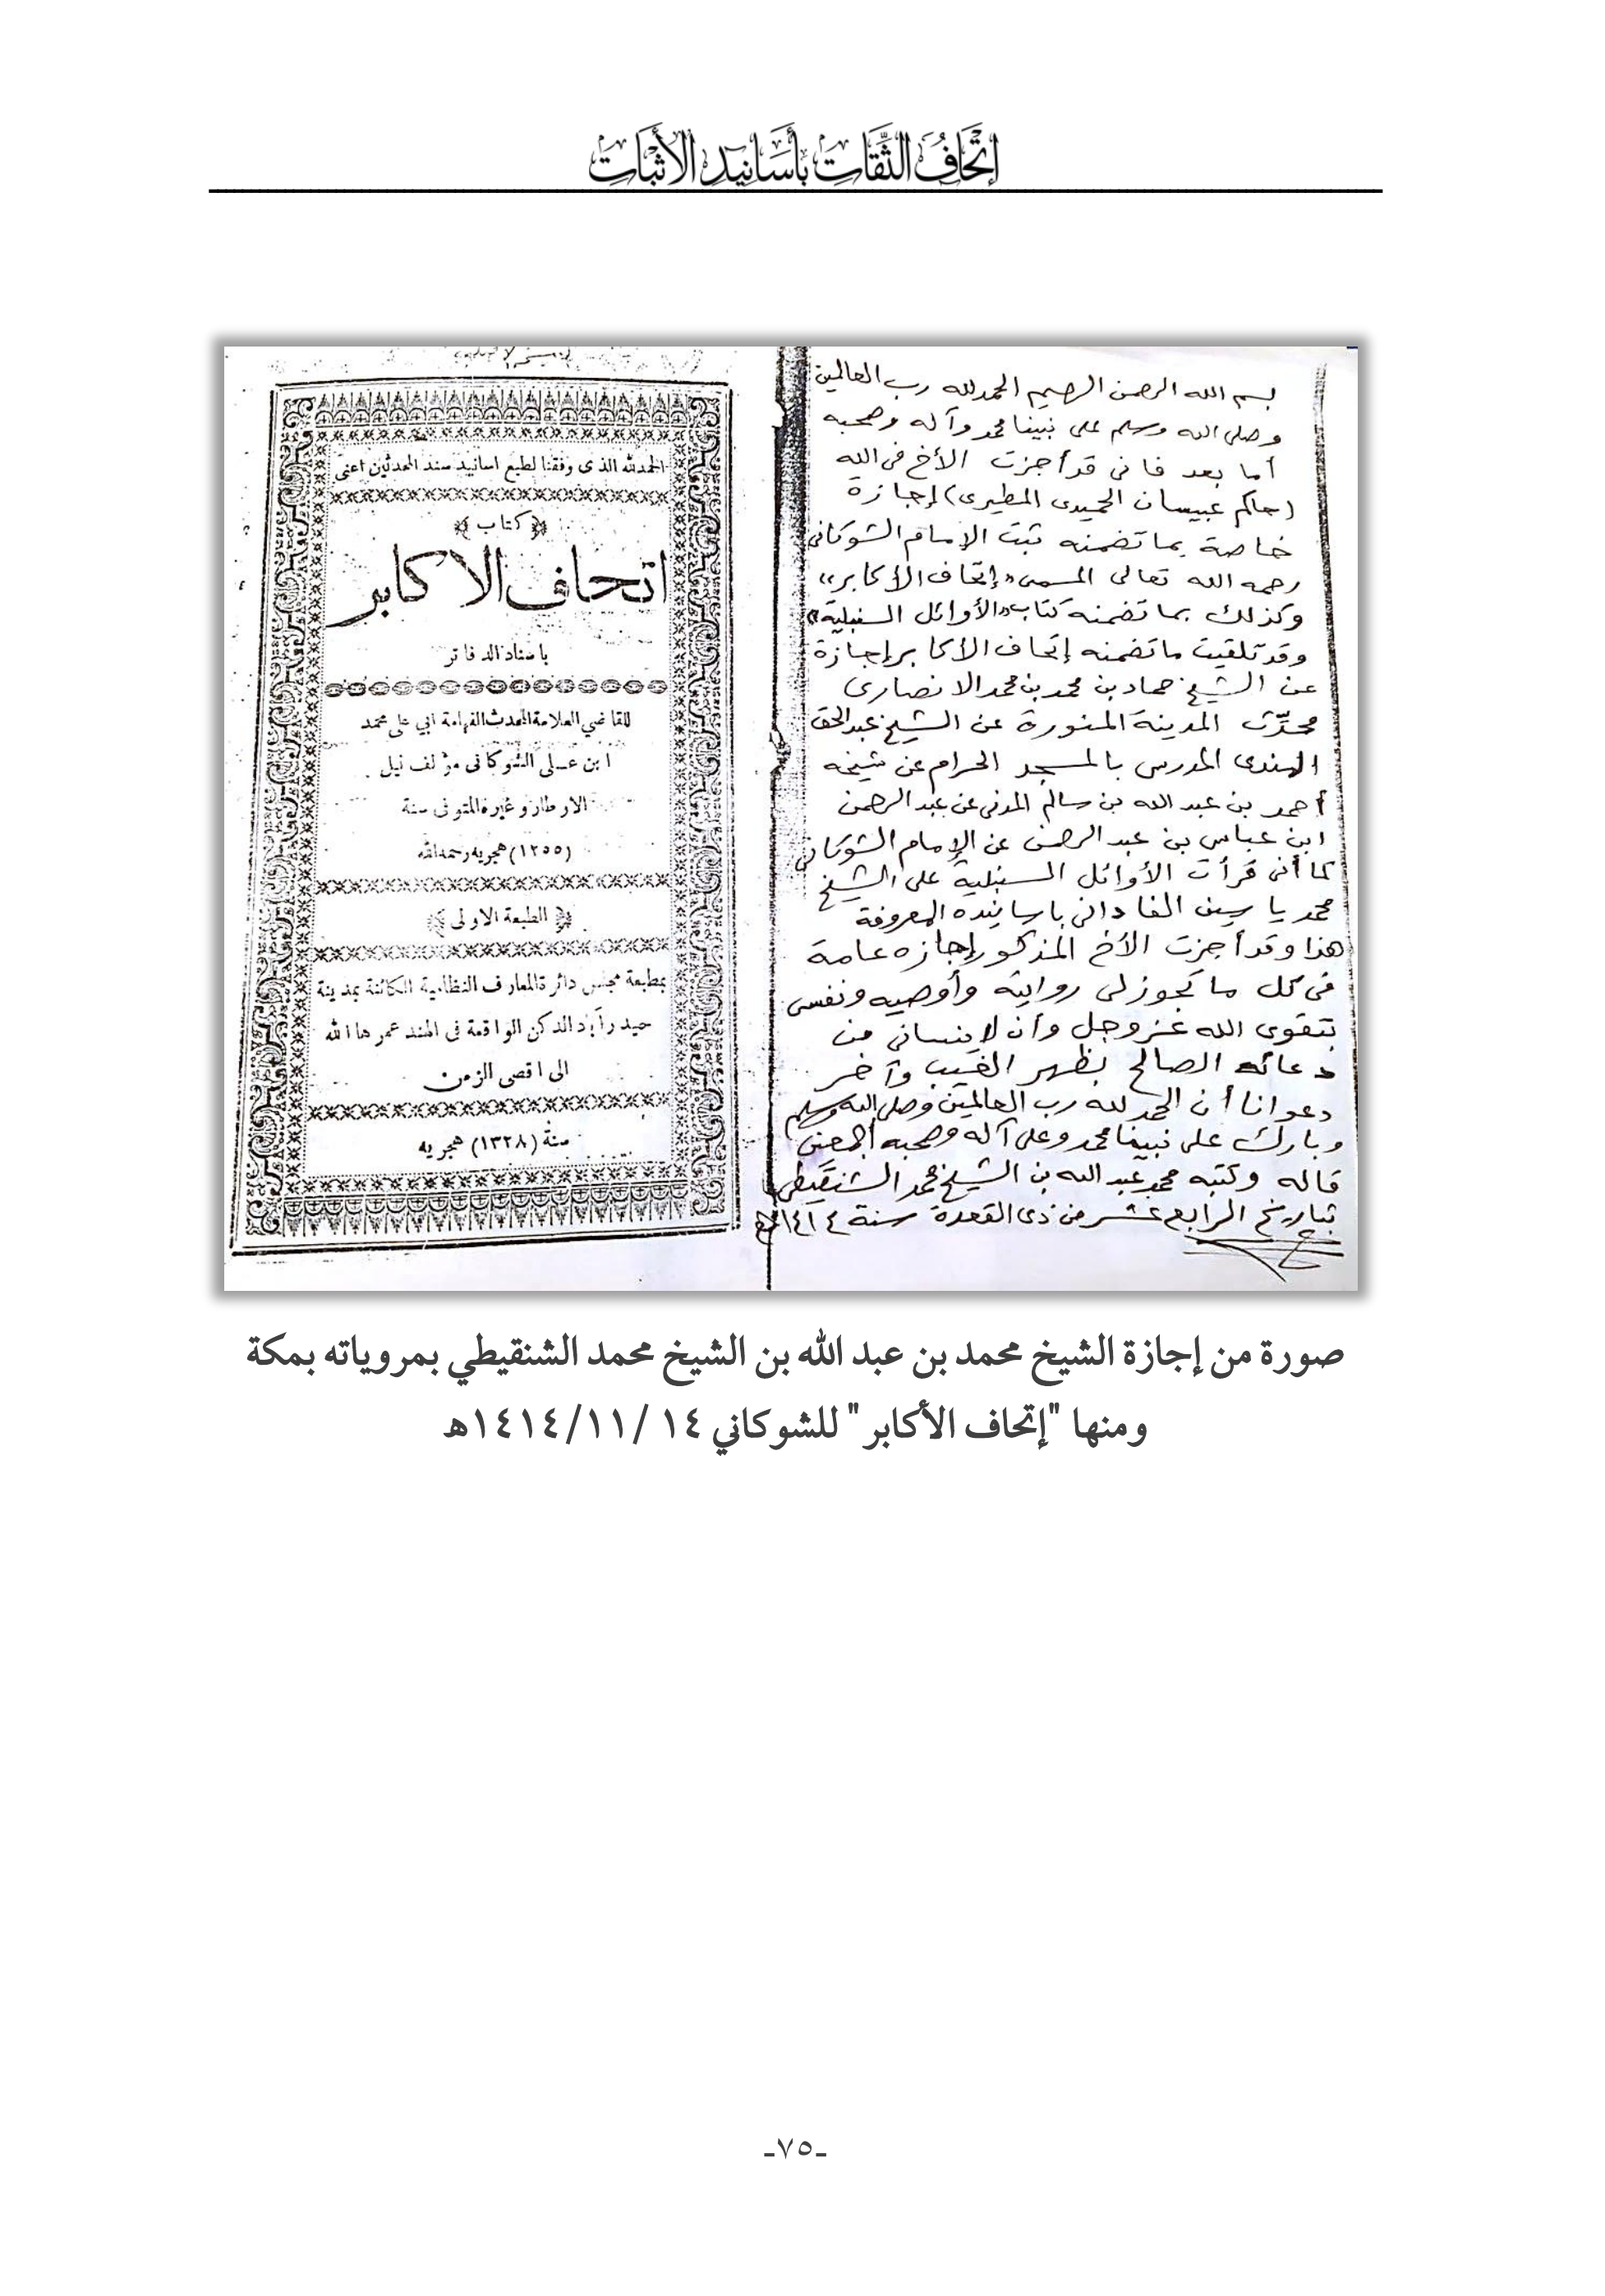 إِتْحَافُ الثِّقَاتِ بِأَسَانِيدِ الأَثْبَاتِ
بسم الله الرحمن الرحيم الحمد لله رب العالمين
وصلى الله وسلم على نبينا محمد وآله وصحبه
أما بعد فاني قد أجزت الأخ في الله
(حاكم عبيسان الحميدى المطيرى) إجازة
خاصة بما تضمنه ثبت الإمام الشوكانى
رحمه الله تعالى المسمى «إتحاف الأكابر»
وكذلك بما تضمنه كتاب «الأوائل السنبلية»
وقد تلقيت ما تضمنه إتحاف الأكابر إجازة
عن الشيخ حماد بن محمد بن محمد الانصارى
محدّث المدينة المنورة عن الشيخ عبد الحق
الهندى المدرس بالمسجد الحرام عن شيخه
أحمد بن عبد الله بن سالم المدنى عن عبد الرحمن
ابن عباس بن عبد الرحمن عن الإمام الشوكانى
كما أنى قرأت الأوائل السنبلية على الشيخ
محمد ياسين الفادانى باسانيده المعروفة
هذا وقد أجزت الأخ المذكور إجازه عامة
فى كل ما تجوز لى روايته وأوصيه ونفسى
بتقوى الله عز وجل وأن لا ينسانى من
دعائه الصالح بظهر الغيب وآخر
دعوانا أن الحمد لله رب العالمين وصلى الله وسلم
وبارك على نبينا محمد وعلى آله وصحبه أجمعين
قاله وكتبه محمد عبد الله بن الشيخ محمد الشنقيطى
بتاريخ الرابع عشر من ذى القعدة سنة ١٤١٤هـ
الحمد لله الذى وفقنا لطبع اسانيد سند المحدثين اعنى
﴿ كتاب ﴾
اتحاف الاكابر
باسناد الدفاتر
للقاضي العلامة المحدث الفهامة ابي على محمد
ابن عــلى الشوكانى مؤلف نيل
الاوطار وغيره المتوفى سنة
(١٢٥٥) هجريه رحمه الله
﴿ الطبعة الاولى ﴾
بمطبعة مجلس دائرة المعارف النظامية الكائنة بمدينة
حيدرآباد الدكن الواقعة فى الهند عمرها الله
الى اقصى الزمن
سنة (١٣٢٨) هجريه
صورة من إجازة الشيخ محمد بن عبد الله بن الشيخ محمد الشنقيطي بمروياته بمكة
ومنها "إتحاف الأكابر" للشوكاني ١٤ /١٤١٤/١١هـ
-٧٥-